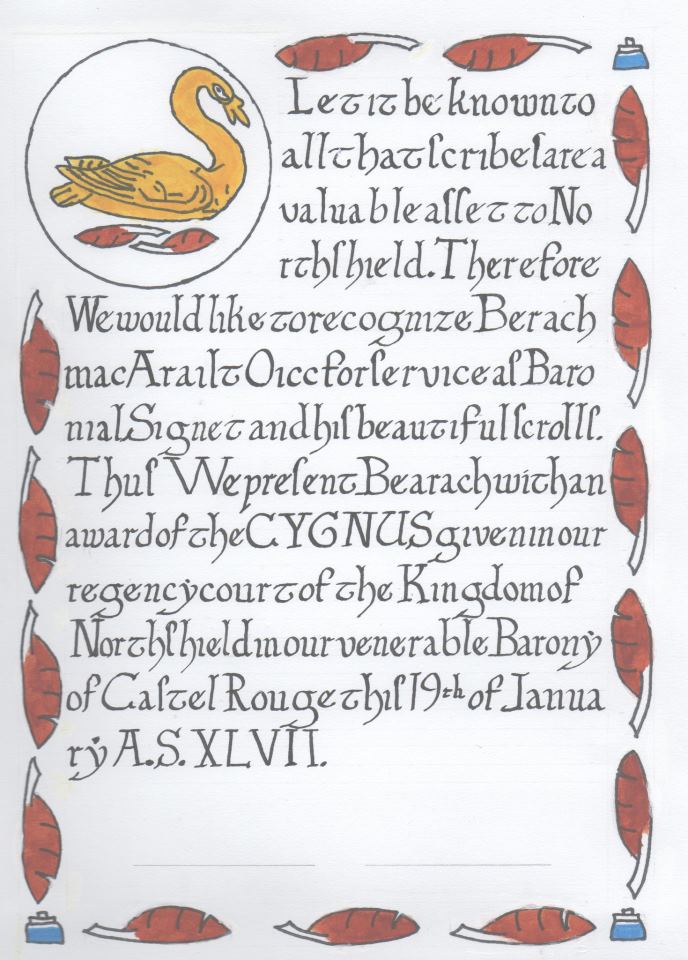 Let it be known to
all that ſcribeſ are a
valuable aſſet to No
rthſhield. Therefore
We would like to recognize Berach
mac Arailt Oicc for ſervice aſ Baro
nial Signet and hiſ beautiful ſcrollſ.
Thuſ We preſent Bearach with an
award of the CYGNUS given in our
regency court of the Kingdom of
Northſhield in our venerable Barony
of Caſtel Rouge thiſ 19th of Janua
ry A.S. XLVII.